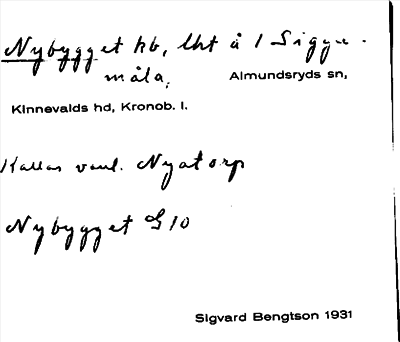 Nybygget hb, lht å 1 Siggu-
måla, Almundsryds sn,
Kinnevalds hd, Kronob. l.
Kallas vanl. Nyatorp
Nybygget G10
Sigvard Bengtson 1931